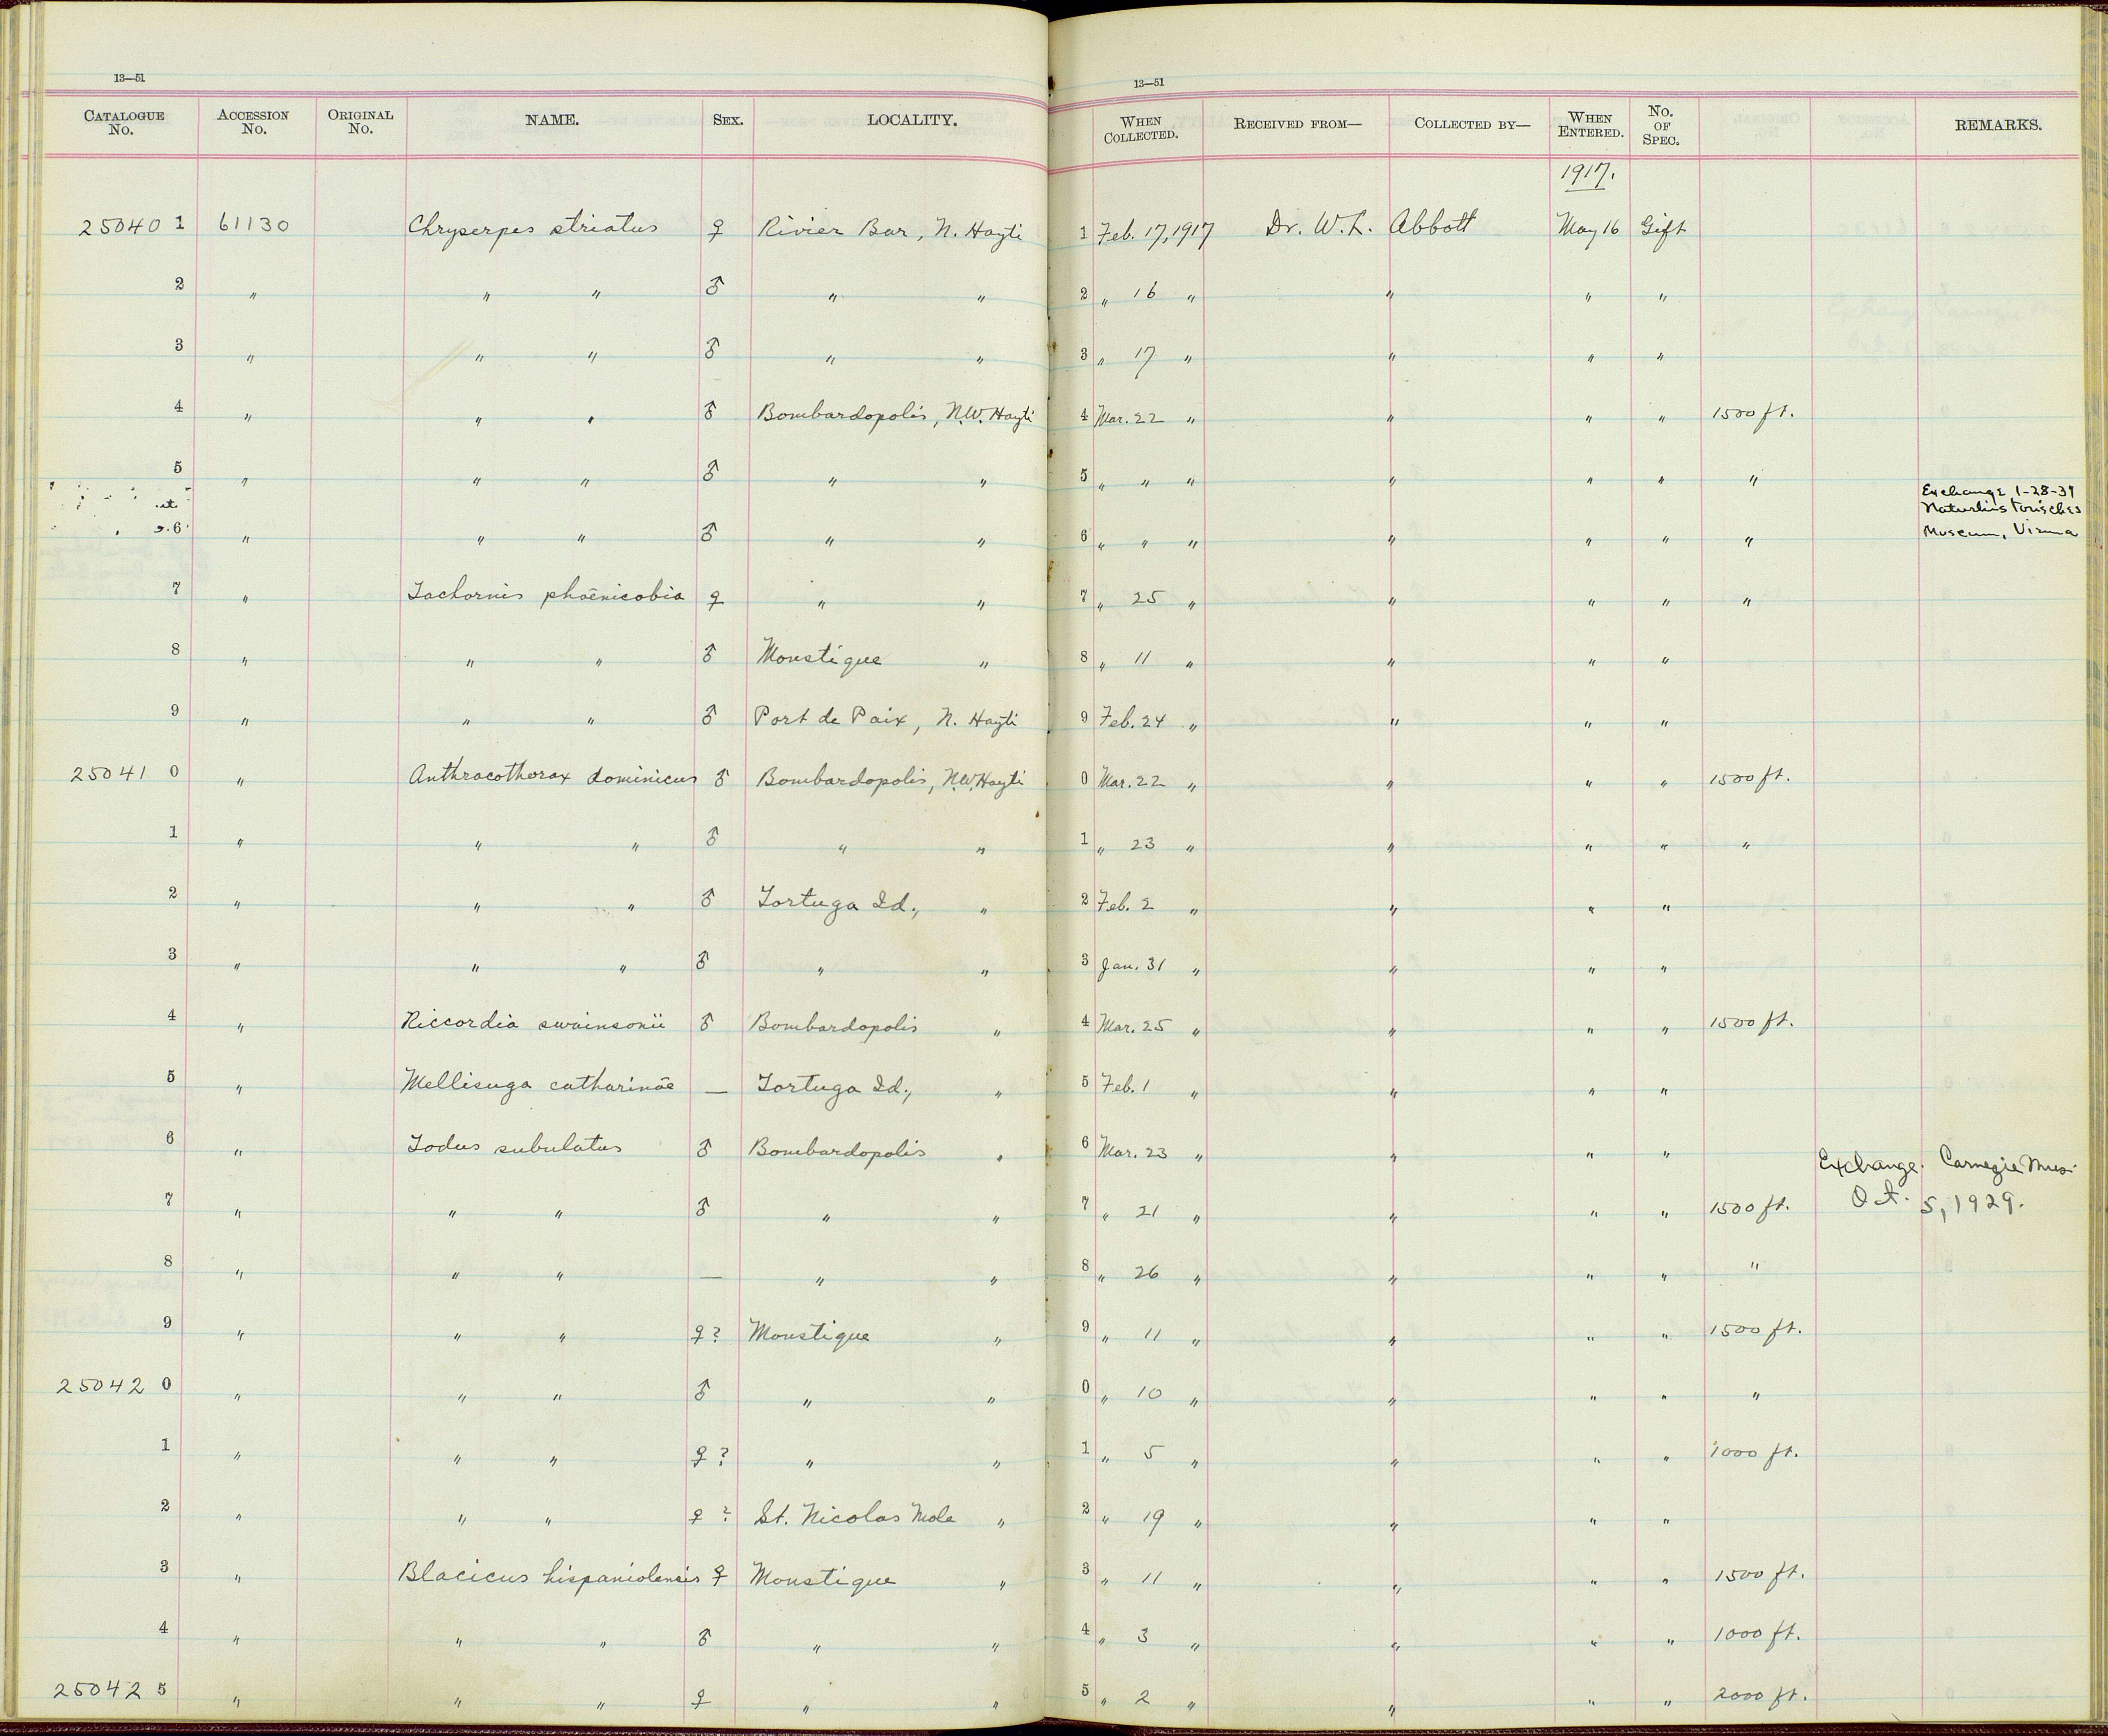 13—51
13—51
CATALOGUE No. ACCESSION No. ORIGINAL No. NAME. SEX. LOCALITY. WHEN COLLECTED. RECEIVED FROM— COLLECTED BY— WHEN ENTERED. No. OF SPEC. REMARKS.
1917.
25040 1 61130 Chryserpes striatus ♀ Rivier Bar, N. Hayti 1 Feb. 17, 1917 Dr. W. L. Abbott May 16 Gift
2 " " " ♂ " " 2 " 16 " " " "
3 " " " ♂ " " 3 " 17 " " " "
4 " " " ♂ Bombardopolis, N.W. Hayti 4 Mar. 22 " " " " 1500 ft.
5 " " " ♂ " " 5 " " " " " " "
6 " " " ♂ " " 6 " " " " " " " Exchange 1-28-39
Naturhistorisches
Museum, Vienna
7 " Tachornis phoenicobia ♀ " " 7 " 25 " " " " "
8 " " " ♂ Moustique " 8 " 11 " " " "
9 " " " ♂ Port de Paix, N. Hayti 9 Feb. 24 " " " "
25041 0 " Anthracothorax dominicus ♂ Bombardopolis, N.W. Hayti 0 Mar. 22 " " " " 1500 ft.
1 " " " ♂ " " 1 " 23 " " " " "
2 " " " ♂ Tortuga Id., " 2 Feb. 2 " " " "
3 " " " ♂ " " 3 Jan. 31 " " " "
4 " Riccordia swainsonii ♂ Bombardopolis " 4 Mar. 25 " " " " 1500 ft.
5 " Mellisuga catharinae — Tortuga Id., " 5 Feb. 1 " " " "
6 " Todus subulatus ♂ Bombardopolis " 6 Mar. 23 " " " " Exchange. Carnegie Mus.
7 " " " ♂ " " 7 " 21 " " " " 1500 ft. Oct. 5, 1929.
8 " " " — " " 8 " 26 " " " " "
9 " " " ♀? Moustique " 9 " 11 " " " " 1500 ft.
25042 0 " " " ♂ " " 0 " 10 " " " " "
1 " " " ♀? " " 1 " 5 " " " " 1000 ft.
2 " " " ♀? St. Nicolas Mole " 2 " 19 " " " "
3 " Blacicus hispaniolensis ♀ Moustique " 3 " 11 " " " " 1500 ft.
4 " " " ♂ " " 4 " 3 " " " " 1000 ft.
25042 5 " " " ♀ " " 5 " 2 " " " " 2000 ft.